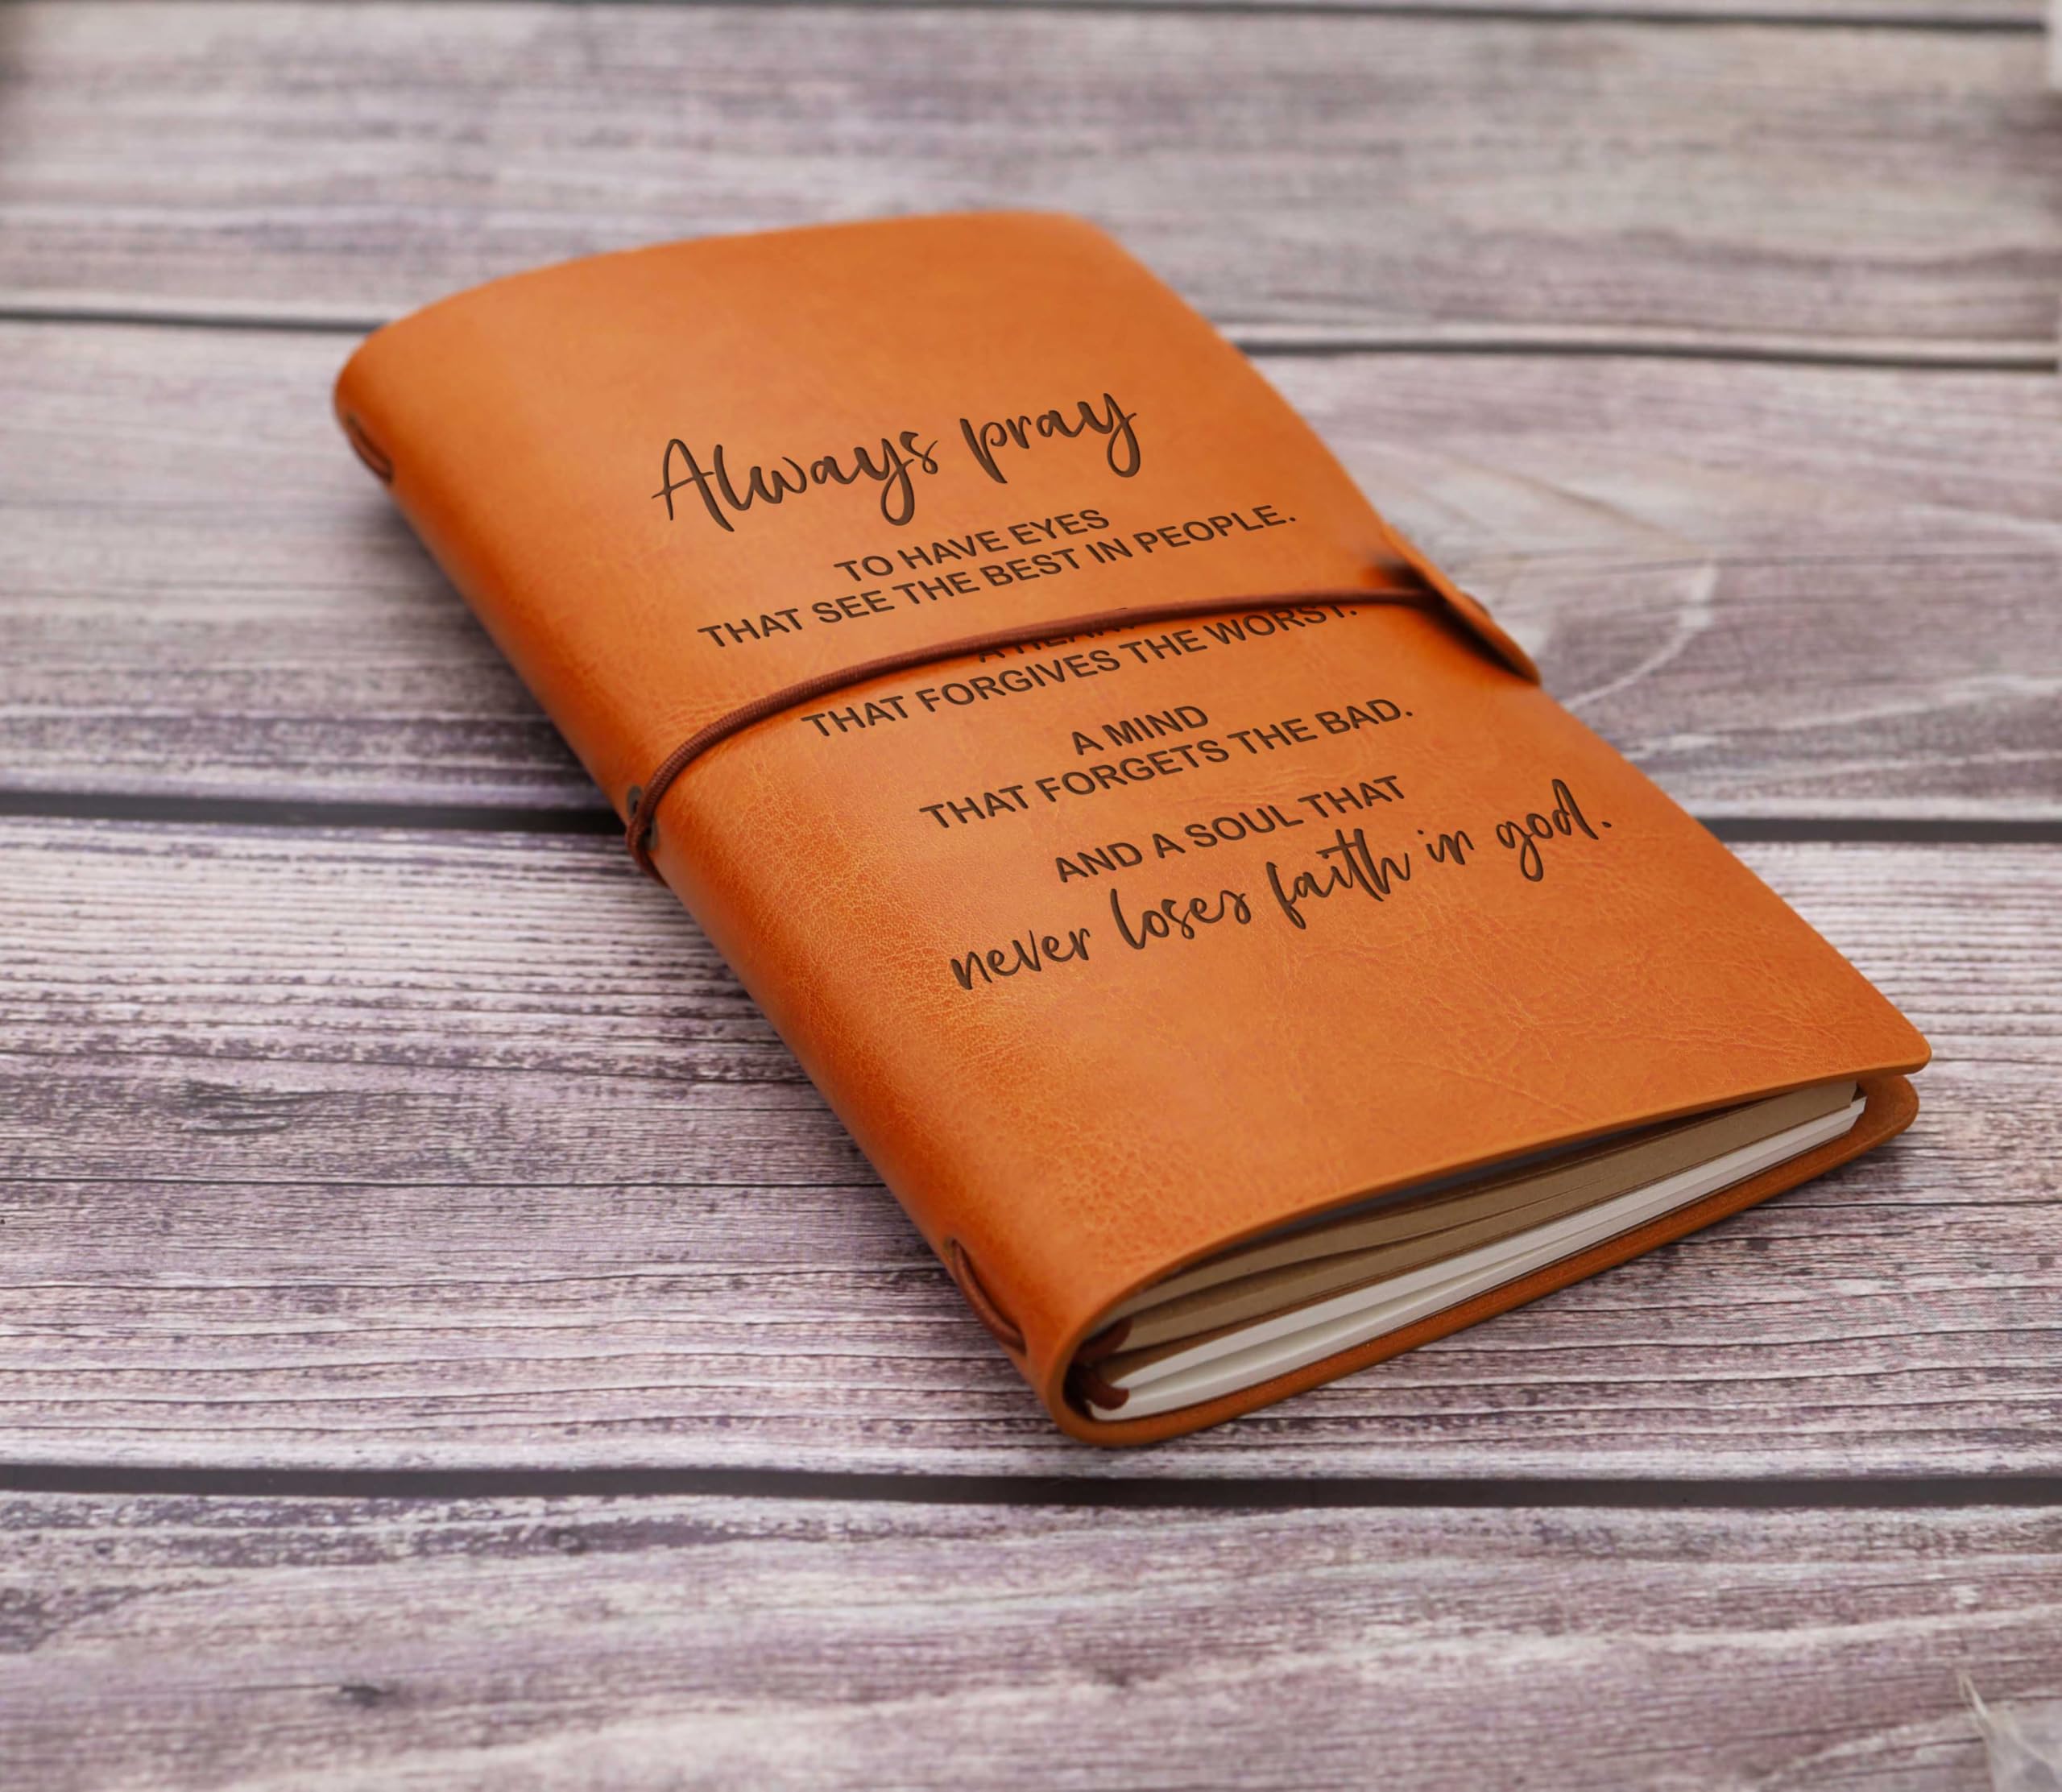 Always pray
TO HAVE EYES
THAT SEE THE BEST IN PEOPLE.
A HEART
THAT FORGIVES THE WORST.
A MIND
THAT FORGETS THE BAD.
AND A SOUL THAT
never loses faith in god.